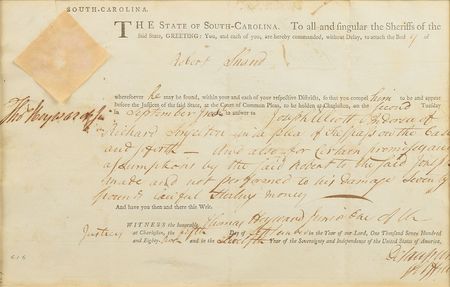 SOUTH-CAROLINA.
THE STATE OF SOUTH-CAROLINA. To all and singular the Sheriffs of the
said State, GREETING: You, and each of you, are hereby commanded, without Delay, to attach the Body of
Robert
wheresoever he may be found, within your and each of your respective Districts, so that you compel him to be and appear
before the Justices of the said State, at the Court of Common Pleas, to be holden at Charleston, on the second Tuesday
in September next to answer to Joseph of
Richard in a plea of Trespass on the Case
and so forth And also for certain promises and
assumptions by the said Robert to the said Joseph
made and not performed to his Damage Seventy
pounds Lawful Sterling Money
And have you then and there this Writ.
WITNESS the honorable Thomas Heyward junior One of the
Justices at Charleston, the Day of in the Year of our Lord, One Thousand Seven Hundred
and Eighty- and in the Year of the Sovereignty and Independence of the United States of America.